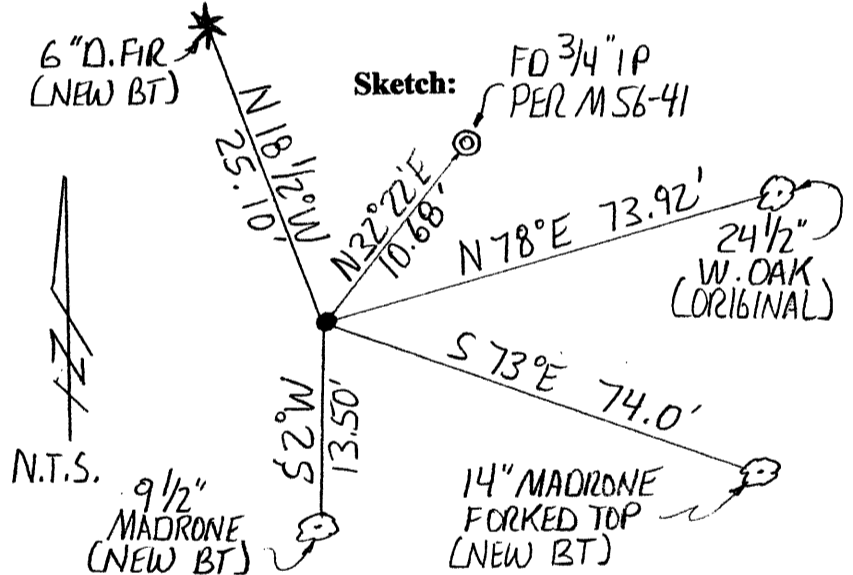 6" D. FIR
(NEW BT)
Sketch:
FD 3/4" IP
PER M56-41
N 18 1/2°W
25.10'
N32°22'E
10.68'
N 78°E 73.92'
24 1/2"
W. OAK
(ORIGINAL)
N
N.T.S.
S 73°E 74.0'
S 2°W
13.50'
9 1/2"
MADRONE
(NEW BT)
14" MADRONE
FORKED TOP
(NEW BT)